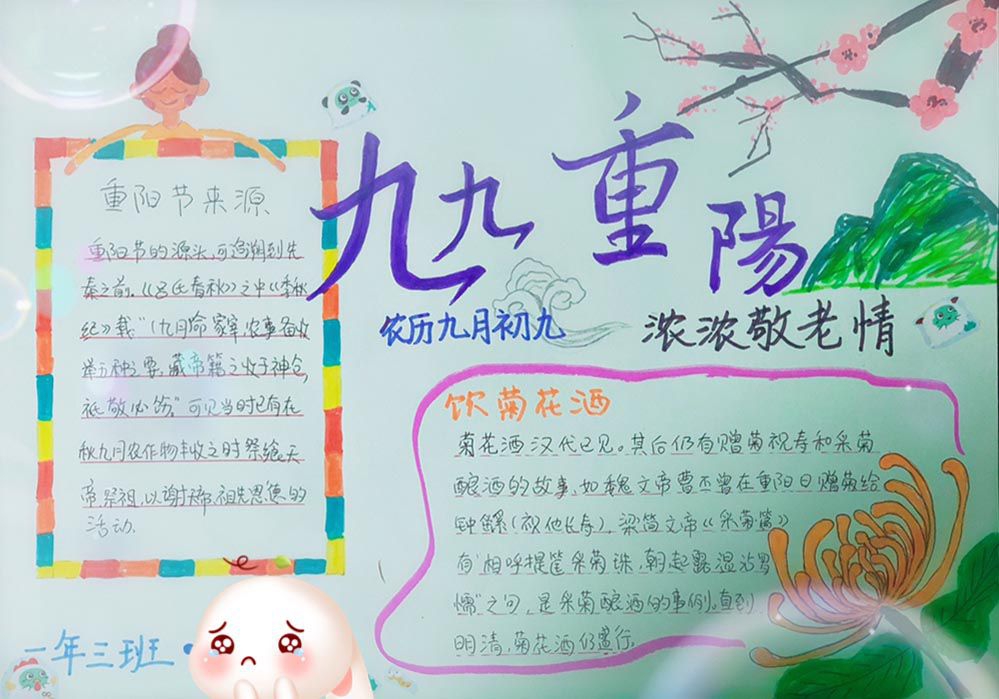 九九重陽
农历九月初九
浓浓敬老情
重阳节来源
重阳节的源头,可追溯到先
秦之前。《吕氏春秋》之中《季秋
纪》载"(九月)命家宰,农事备收
举五种之要。藏帝籍之收于神仓,
祗敬必饬。"可见当时已有在
秋九月农作物丰收之时祭飨天
帝祭祖,以谢天帝、祖先恩德的
活动.
饮菊花酒
菊花酒汉代已见。其后仍有赠菊祝寿和采菊
酿酒的故事,如魏文帝曹丕曾在重阳日赠菊给
钟繇(祝他长寿),梁简文帝《采菊篇》
有"相呼提筐采菊珠,朝起露湿沾罗
懦"之句,是采菊酿酒的事例。直到
明清,菊花酒仍盛行.
一年三班